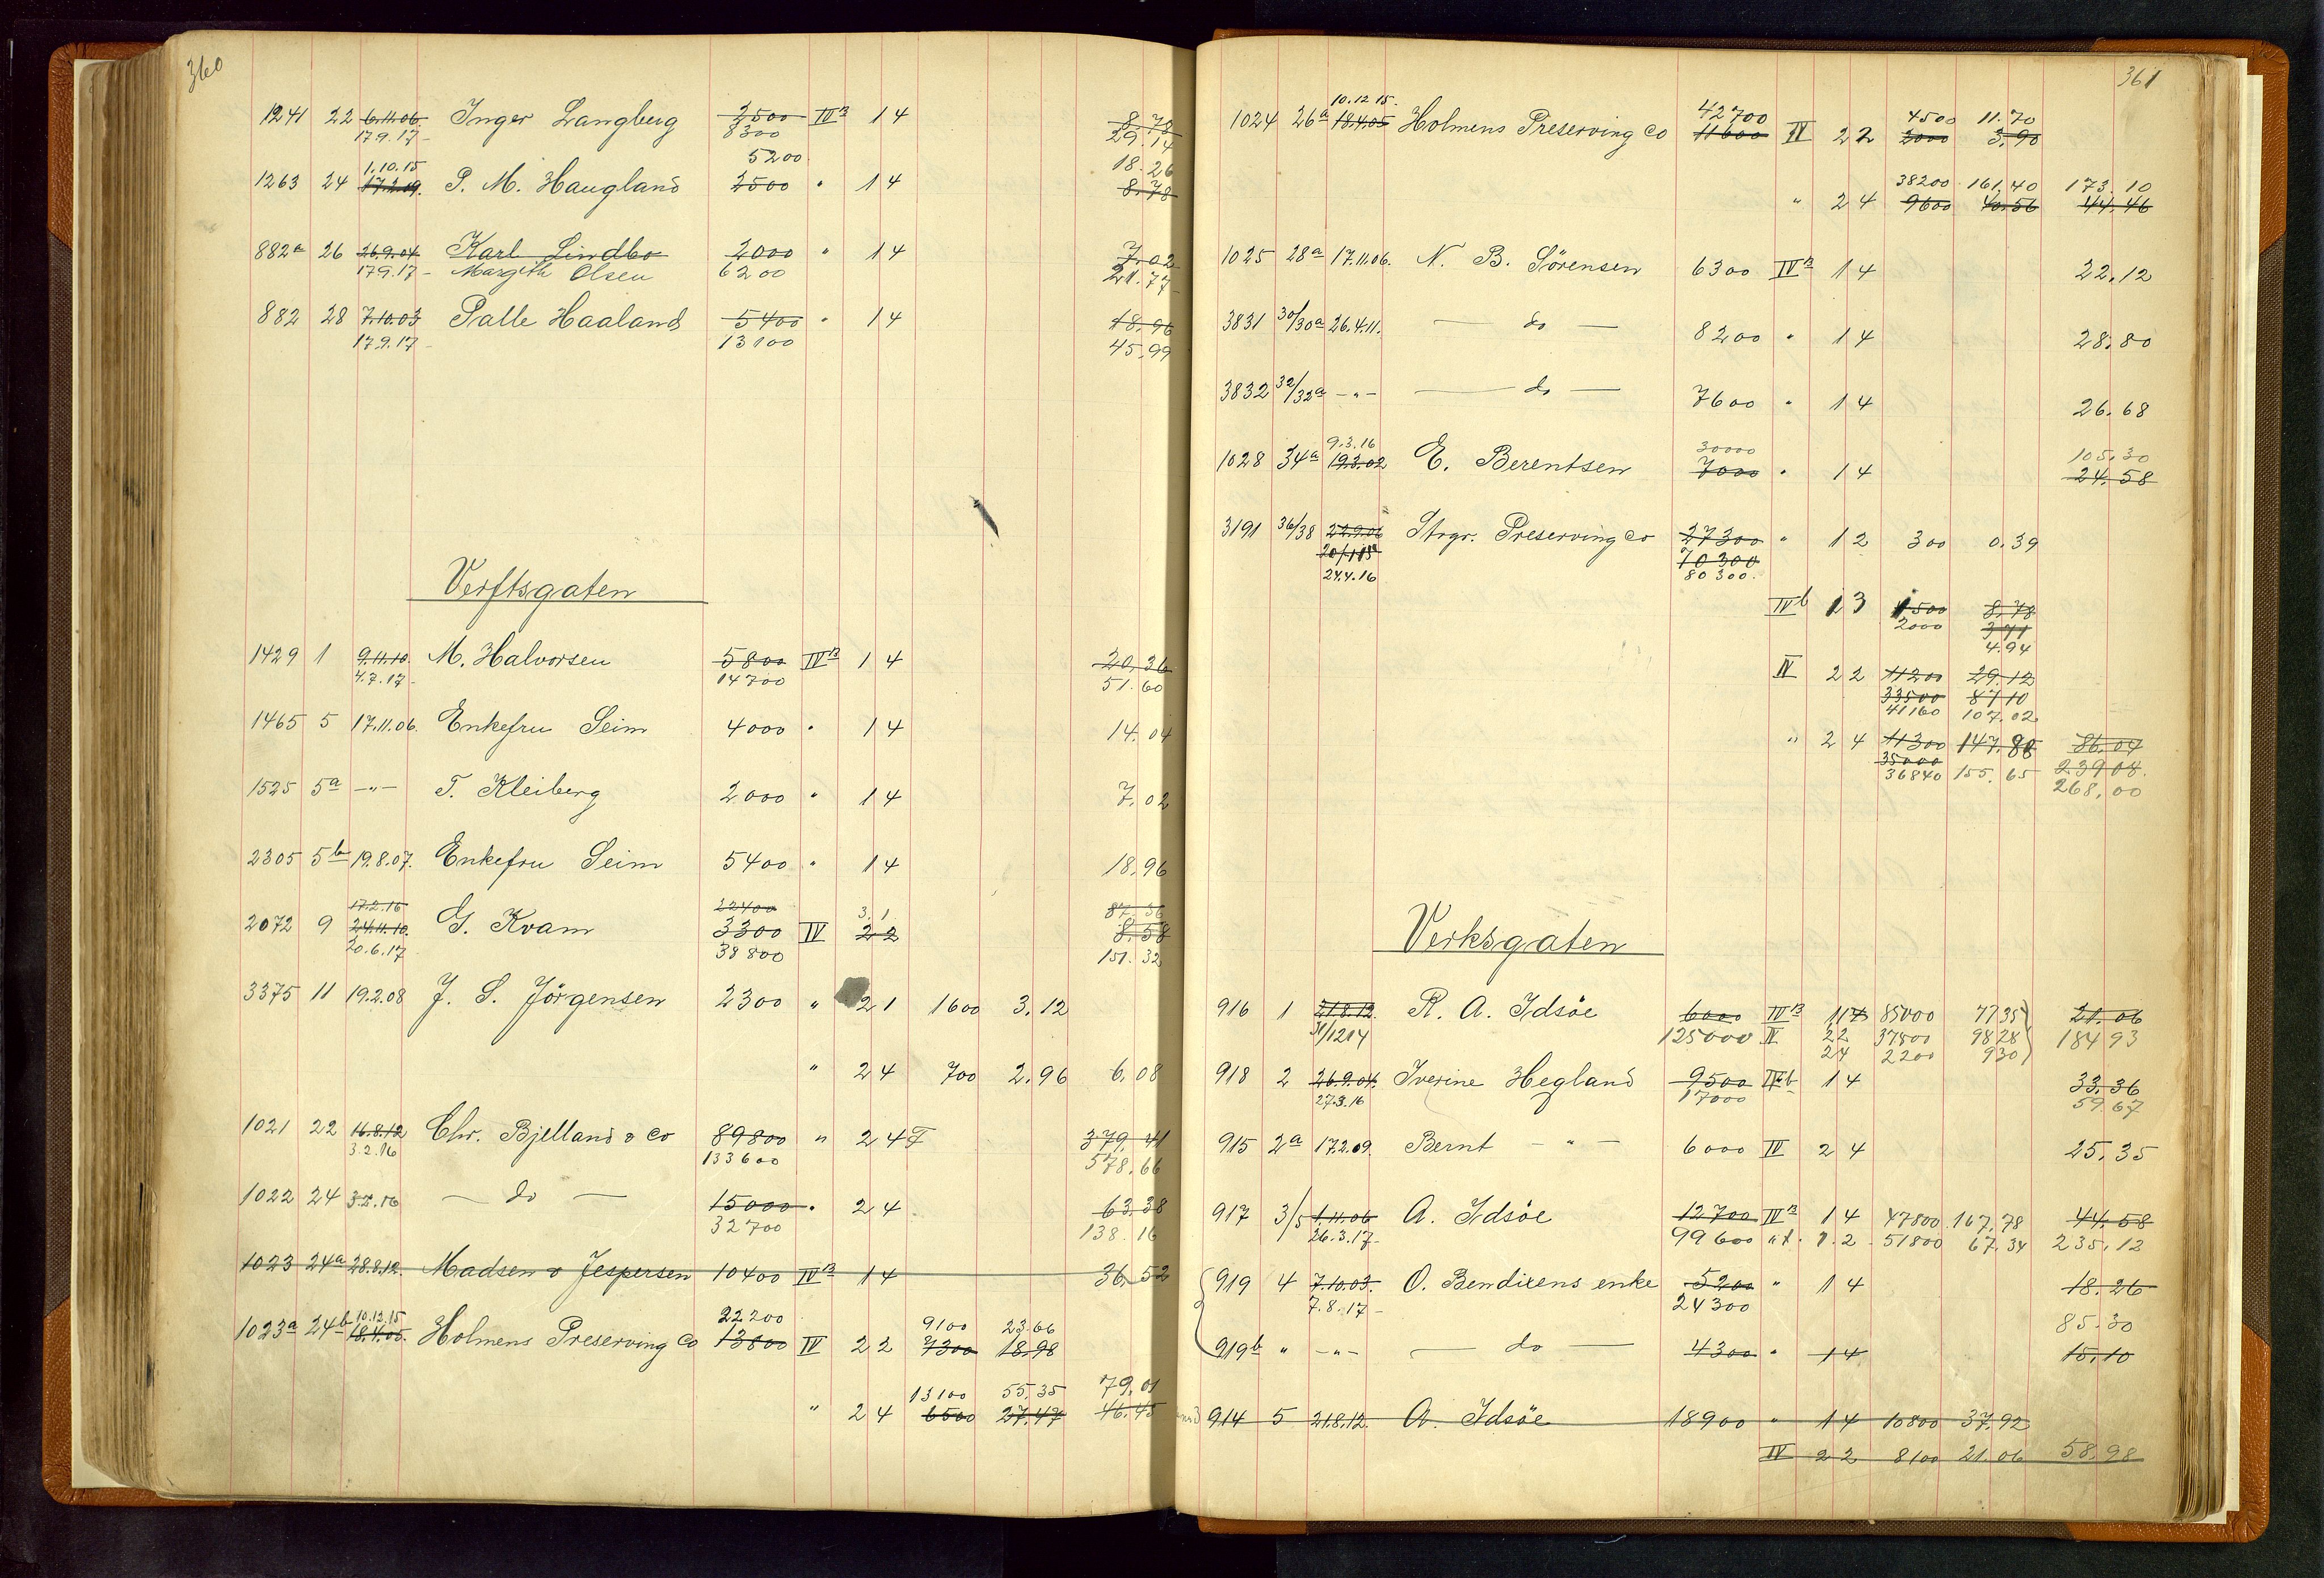 360
1241 22 6.11.06. Inger Langberg 2500 IVB 14 8.78
17.9.17- 8300 29.14
1.10.15 5200 18.26
1263 24 17.2.09. P. M. Haugland 2500 " 14 8.78
882a 26 26.9.04 Karl Lindbo 2000 " 14 7.02
17.9.17- Margith Olsen 6200 21.77
882 28 7.10.03 Palle Haaland 5400 " 14 18.96
17.9.17- 13100 45.99
Verftsgaten
1429 1 9.11.10. M. Halvorsen 5800 IVB 14 20.36
4.7.17- 14700 51.60
1465 5 17.11.06. Enkefru Seim 4000 " 14 14.04
1525 5a -"- T. Kleiberg 2000 " 14 7.02
2305 5b 19.8.07. Enkefru Seim 5400 " 14 18.96
17.2.16 22400 3.1 87.36
2072 9 24.11.10. G. Kvam 3300 IV 22 8.58
20.6.17 38800 151.32
3375 11 19.2.08 J. S. Jörgensen 2300 " 21 1600 3.12
" 24 700 2.96 6.08
1021 22 16.8.12 Chr. Bjelland & Co 89800 " 24F 379.41
3.2.16 133600 578.66
1022 24 3.2.16 — do — 15000 " 24 63.38
32700 138.16
1023 24a 28.8.12. Madsen & Jespersen 10400 IVB 14 36.52
10.12.15 22200 9100 23.66
1023a 24b 18.4.05. Holmens Preserving Co 13800 IV 22 7300 18.98
13100 55.35 79.01
" 24 6500 27.47 46.45
361
10.12.15. 42700 4500 11.70
1024 26a 18.4.05 Holmens Preserving Co 11600 IV 22 2000 3.90
38200 161.40 173.10
" 24 9600 40.56 44.46
1025 28a 17.11.06. N. B. Sörensen 6300 IVB 14 22.12
3831 30/30a 26.4.11. — do — 8200 " 14 28.80
3832 32/32a -"- — do — 7600 " 14 26.68
9.3.16 30000 105.30
1028 34a 19.3.02 E. Berentsen 7000 " 14 24.58
3191 36/38 22.9.06 Stvgr. Preserving Co 27300 " 12 300 0.39
20/1 15 70300
24.4.16 80300.
IVb 13 1500 8.78
2000 3.71
4.94
IV 22 11200 29.12
33500 87.10
41160 107.02
" 24 11300 147.88 86.04
35000 239.08.
36840 155.65 268.00
Verksgaten
916 1 21.8.12. R. A. Idsöe 6000 IVB 114 85000 7735 21.06
31/12 14 125000 IV 22 37800 9828 184 93
24 2200 930
918 2 26.9.04. Iverine Hegland 9500 IVb 14 33.36
27.3.16 17000 59.67
915 2a 17.2.09. Bernt — " — 6000 IV 24 25.35
917 3/5 1.11.06 A. Idsöe 12700 IVB 14 47800 167.78 44.58
26.3.17- 99600 1.2 51800 67.34 235.12
919 4 7.10.03. O. Bendixens enke 5200 " 14 18.26
7.8.17- 24300
85.30
919b " -"- — do — 4300 " 14 15.10
914 5 21.8.12. A. Idsöe 18900 " 14 10800 37.92
IV 22 8100 21.06 58.98